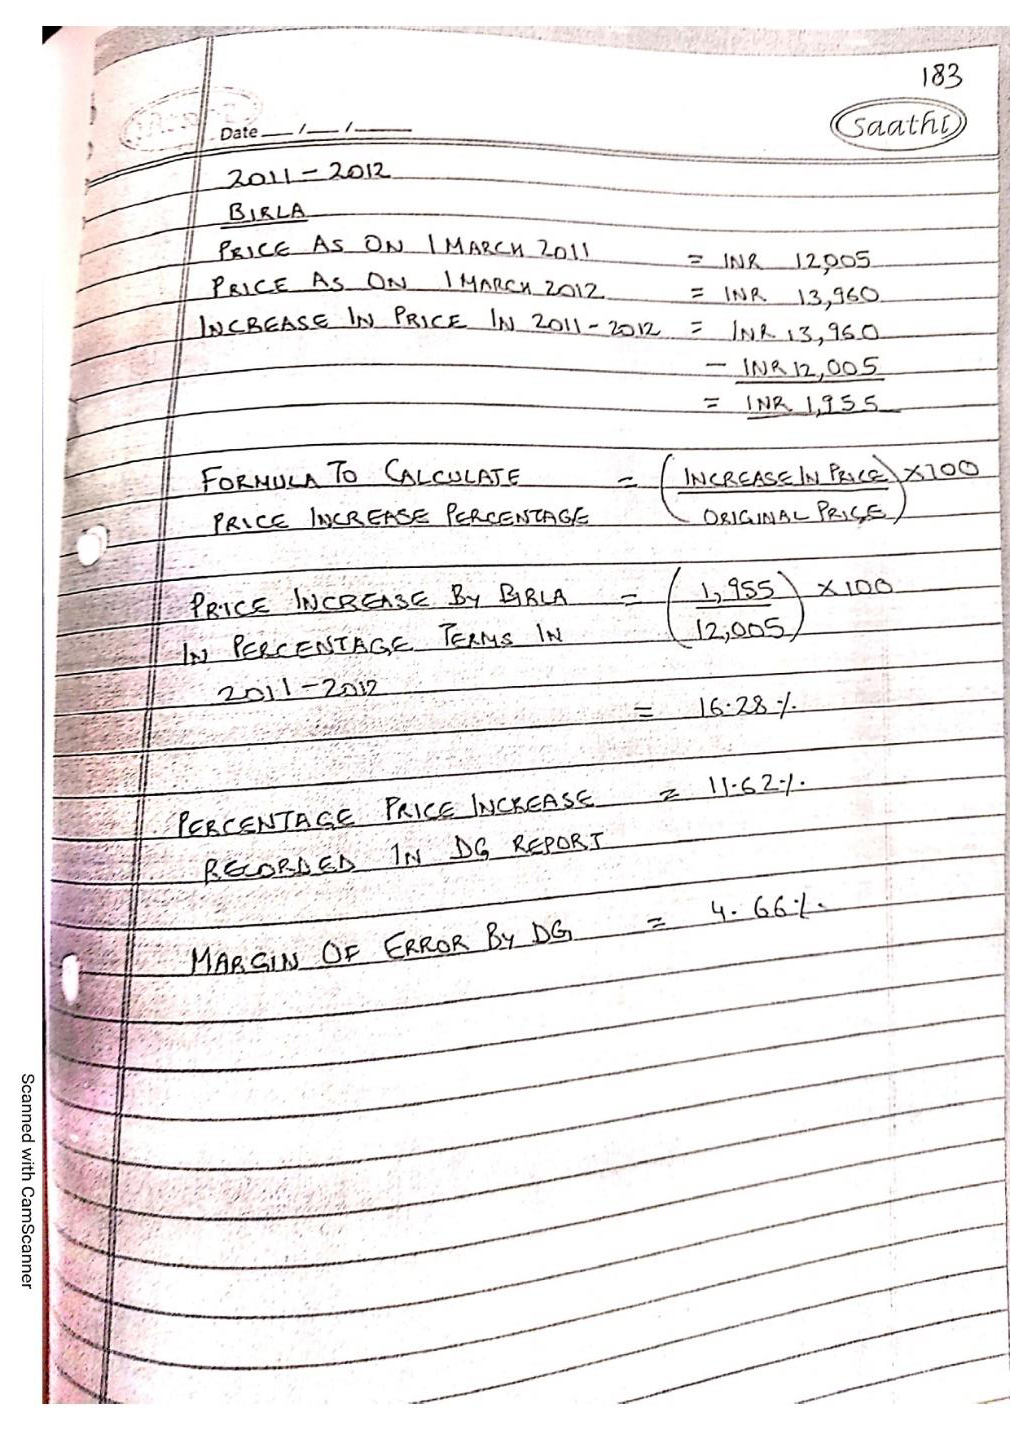 183
Saathi
Date __/__/____
2011-2012
BIRLA
PRICE AS ON 1 MARCH 2011 = INR 12,005
PRICE AS ON 1 MARCH 2012 = INR 13,960
INCREASE IN PRICE IN 2011-2012 = INR 13,960
- INR 12,005
= INR 1,955
FORMULA TO CALCULATE = (INCREASE IN PRICE) X100
PRICE INCREASE PERCENTAGE ORIGINAL PRICE
PRICE INCREASE BY BIRLA = (1,955) X100
IN PERCENTAGE TERMS IN 12,005
2011-2012
= 16.28%
PERCENTAGE PRICE INCREASE = 11.62%.
RECORDED IN DG REPORT
MARGIN OF ERROR BY DG = 4.66%.
Scanned with CamScanner